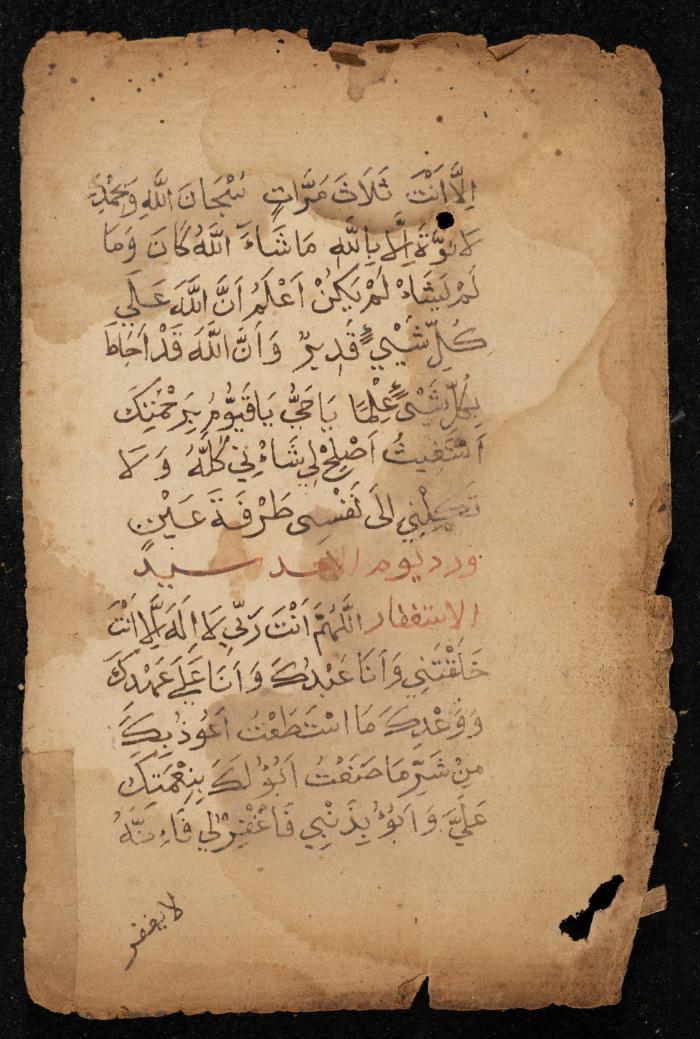 اِلَّا اَنْتَ ثَلَاثَ مَرَّاتٍ سُبْحَانَ اللّٰهِ وَبِحَمْدِهِ
لَا قُوَّةَ اِلَّا بِاللّٰهِ مَا شَاءَ اللّٰهُ كَانَ وَمَا
لَمْ يَشَاءْ لَمْ يَكُنْ اَعْلَمُ اَنَّ اللّٰهَ عَلَي
كُلِّ شَيْيءٍ قَدِيرٌ وَاَنَّ اللّٰهَ قَدْ اَحَاطَ
بِكُلِّ شَيْیءٍ عِلْمًا يَا حَيُّ يَا قَيُّومُ بِرَحْمَتِكَ
اَسْتَغِيثُ اَصْلِحْ لِي شَاءْنِي كُلَّهُ وَلَا
تَكِلْنِي اِلَى نَفْسِى طَرْفَةَ عَيْنٍ
ورد يوم الاحد سيد
الاستغفار اَللّٰهُمَّ اَنْتَ رَبِّي لَا اِلَهَ اِلَّا اَنْتَ
خَلَقْتَنِي وَاَنَا عَبْدُكَ وَاَنَا عَلَى عَهْدِكَ
وَوَعْدِكَ مَا اسْتَطَعْتُ اَعُوذُ بِكَ
مِنْ شَرِّ مَا صَنَعْتُ اَبُوْءُ لَكَ بِنِعْمَتِكَ
عَلَيَّ وَاَبُوْءُ بِذَنْبِي فَاغْفِرْ لِي فَاِنَّهُ
لا يغفر